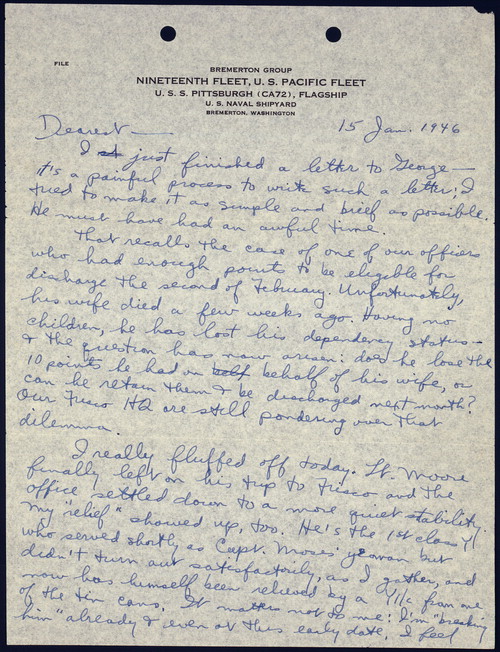 FILE
BREMERTON GROUP
NINETEENTH FLEET, U.S. PACIFIC FLEET
U. S. S. PITTSBURGH (CA72), FLAGSHIP
U. S. NAVAL SHIPYARD
BREMERTON, WASHINGTON
15 Jan. 1946
Dearest —
I just finished a letter to George —
it's a painful process to write such a letter; I
tried to make it as simple and brief as possible.
He must have had an awful time.
That recalls the case of one of our officers
who had enough points to be eligible for
discharge the second of February. Unfortunately,
his wife died a few weeks ago. Having no
children, he has lost his dependency status —
& the question has now arisen: does he lose the
10 points he had on behalf of his wife, or
can he retain them & be discharged next month?
Our Frisco HQ are still pondering over that
dilemma.
I really fluffed off today. Lt. Moore
finally left on his trip to Frisco and the
office settled down to a more quiet stability.
"My relief" showed up, too. He's the 1st class Y
who served shortly as Capt. Moses' yeoman but
didn't turn out satisfactorily, as I gather, and
now has himself been relieved by a Y1/c from one
of the tin cans. It matters not to me: I'm "breaking
him" already & even at this early date, I feel